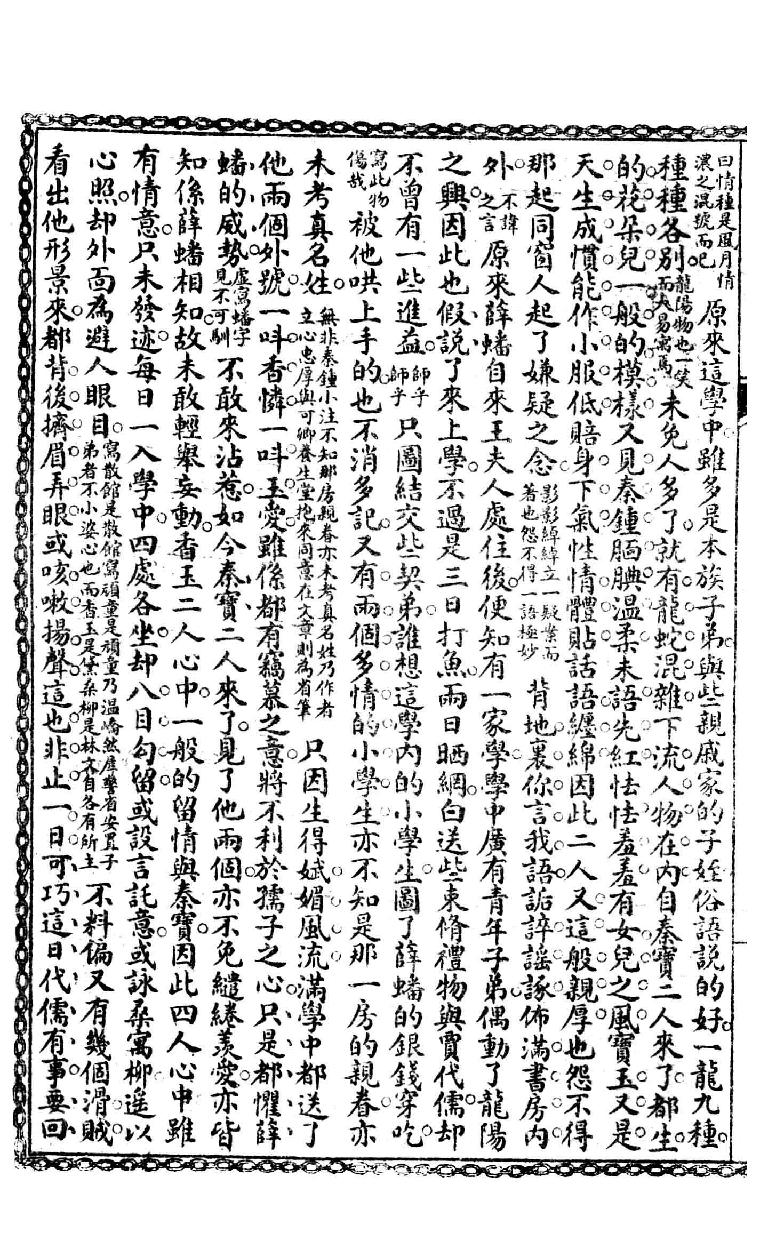 曰情種是風月情濃之混號而已原來這學中雖多是本族子弟與些親戚家的子姪俗語說的好一龍九種
種種各別龍陽物也一笑而大易寓焉未免人多了就有龍蛇混雜下流人物在內自秦寶二人來了都生
的花朵兒一般的模樣又見秦鍾腼腆温柔未語先紅怯怯羞羞有女兒之風寶玉又是
天生成慣能作小服低賠身下氣性情體貼話語纏綿因此二人又這般親厚也怨不得
那起同窗人起了嫌疑之念影影綽綽立一疑案而著也怨不得一語極妙背地裏你言我語詬誶謡諑佈滿書房內
外不諱之言原來薛蟠自來王夫人處住後便知有一家學學中廣有青年子弟偶動了龍陽
之興因此也假說了來上學不過是三日打魚兩日晒網白送些束脩禮物與賈代儒却
不曾有一些進益師乎師乎只圖結交些契弟誰想這學內的小學生圖了薛蟠的銀錢穿吃
寫此物傷哉被他哄上手的也不消多記又有兩個多情的小學生亦不知是那一房的親眷亦
未考真名姓無非秦鍾小注不知那房親眷亦未考真名姓乃作者立心忠厚與可卿養生堂抱來同意在文章則為省筆只因生得娬媚風流滿學中都送了
他兩個外號一呌香憐一呌玉愛雖係都有竊慕之意將不利於孺子之心只是都懼薛
蟠的威勢虛寫蟠字見不可馴不敢來沾惹如今秦寶二人來了見了他兩個亦不免繾綣羨愛亦皆
知係薛蟠相知故未敢輕舉妄動香玉二人心中一般的留情與秦寶因此四人心中雖
有情意只未發迹每日一入學中四處各坐却八目勾留或設言託意或詠桑寓柳遥以
心照却外面為避人眼目寫散館是散館寫頑童是頑童乃温嶠然犀警省安置子弟者不小婆心也而香玉是黛桑柳是林文自各有所主不料偏又有幾個滑賊
看出他形景來都背後擠眉弄眼或咳嗽揚聲這也非止一日可巧這日代儒有事要回